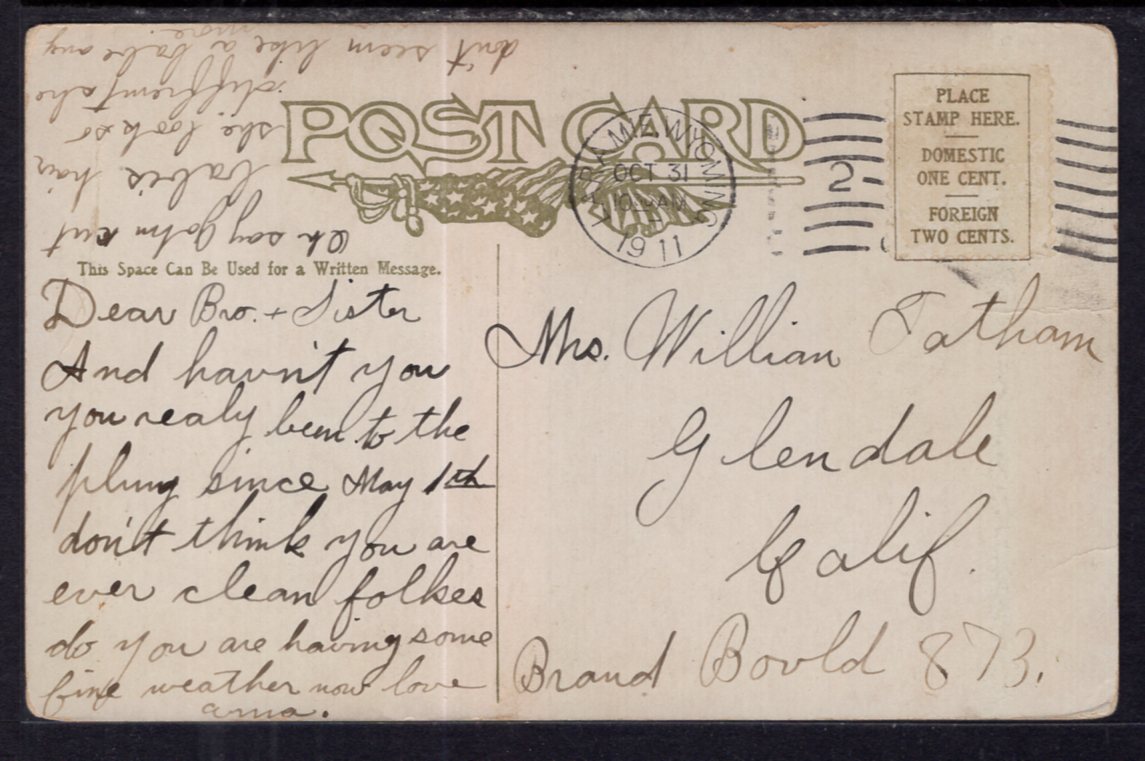 POST CARD
LARAMIE WYOMING
OCT 31
AM
1911
2
PLACE
STAMP HERE.
DOMESTIC
ONE CENT.
FOREIGN
TWO CENTS.
This Space Can Be Used for a Written Message.
Dear Bro. + Sister
And havn't you
you realy been to the
plung since May 1th
don't think you are
ever clean folkes
do you are having some
fine weather now love
Oh say John cut
babis hair
she looks so
different she
don't seem like a babe any
more.
Mrs. William Tatham
Glendale
Calif.
Brand Bovld 873.